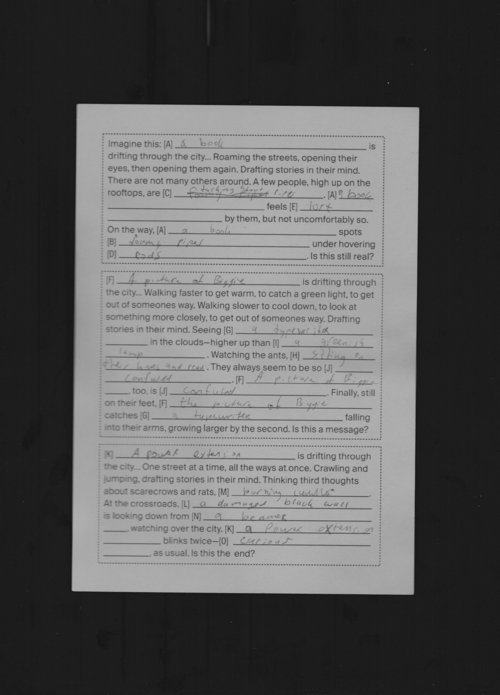 Imagine this: [A] a book is
drifting through the city... Roaming the streets, opening their
eyes, then opening them again. Drafting stories in their mind.
There are not many others around. A few people, high up on the
rooftops, are [C] . [A] a book
feels [E] lost
by them, but not uncomfortably so.
On the way, [A] a book spots
[B] under hovering
[D] . Is this still real?
[F] A picture of Biggie is drifting through
the city... Walking faster to get warm, to catch a green light, to get
out of someones way. Walking slower to cool down, to look at
something more closely, to get out of someones way. Drafting
stories in their mind. Seeing [G] a typewriter
in the clouds–higher up than [I] a greenish
lamp . Watching the ants, [H] sitting on
. They always seem to be so [J]
confused . [F] A picture of Biggie
too, is [J] confused . Finally, still
on their feet, [F] the picture of Biggie
catches [G] a typewriter falling
into their arms, growing larger by the second. Is this a message?
[K] A power extension is drifting through
the city... One street at a time, all the ways at once. Crawling and
jumping, drafting stories in their mind. Thinking third thoughts
about scarecrows and rats, [M] burning .
At the crossroads, [L] a damaged black wall
is looking down from [N] a beamer
watching over the city. [K] a power extension
blinks twice–[O] curious
, as usual. Is this the end?